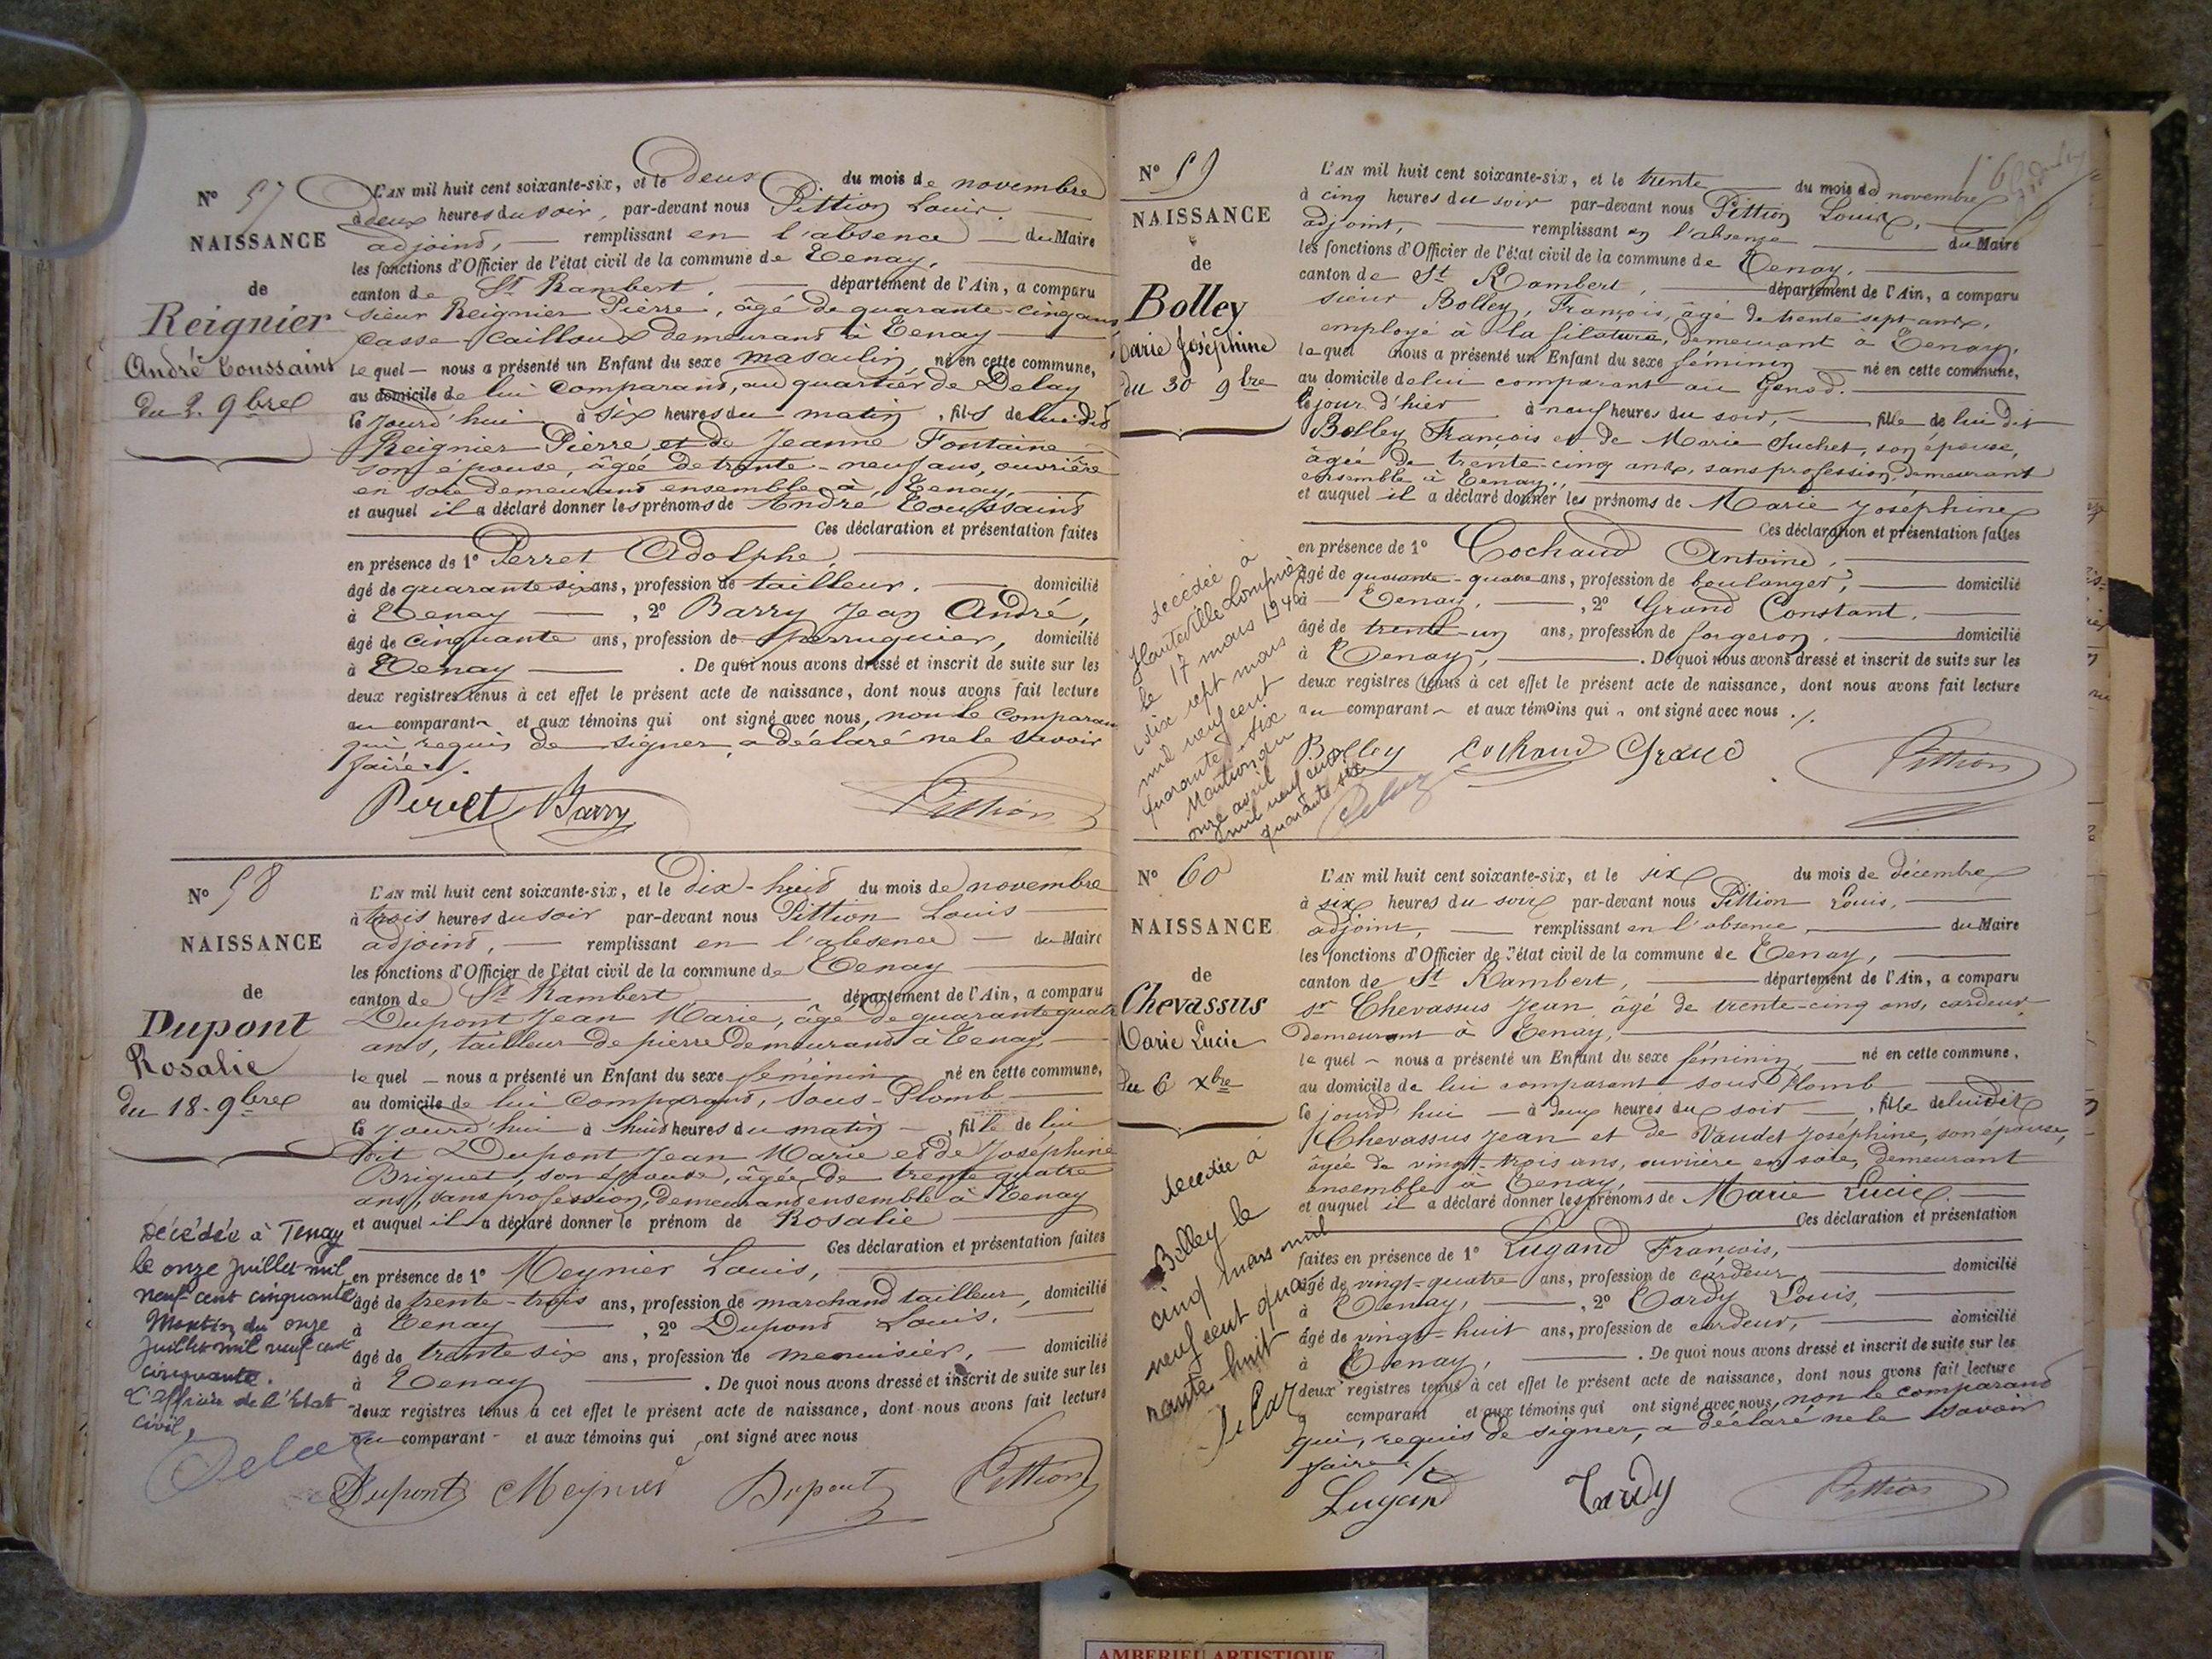 N° 57
NAISSANCE
de
Reignier
André Toussaint
du 2. 9bre
L'AN mil huit cent soixante-six, et le deux du mois de novembre
à deux heures du soir, par-devant nous Pittion Louis.
adjoint, remplissant en l'absence du Maire
les fonctions d'Officier de l'état civil de la commune de Tenay,
canton de St Rambert, département de l'Ain, a comparu
sieur Reignier Pierre, âgé de quarante-cinq ans
casse cailloux demeurant à Tenay
lequel nous a présenté un Enfant du sexe masculin né en cette commune,
au domicile de lui comparant, au quartier de Delay
ce jourd'hui à six heures du matin, fils de lui dit
Reignier Pierre et de Jeanne Fontaine
son épouse, âgée de trente-neuf ans, ouvrière
en soie demeurant ensemble à Tenay,
et auquel il a déclaré donner les prénoms de André Toussaint
Ces déclaration et présentation faites
en présence de 1° Perret Adolphe,
âgé de quarante six ans, profession de tailleur. domicilié
à Tenay, 2° Barry Jean André,
âgé de cinquante ans, profession de perruquier, domicilié
à Tenay. De quoi nous avons dressé et inscrit de suite sur les
deux registres tenus à cet effet le présent acte de naissance, dont nous avons fait lecture
au comparant et aux témoins qui ont signé avec nous, non le comparant
qui, requis de signer, a déclaré ne le savoir
faire ./.
Perret Barry Pittion
N° 58
NAISSANCE
de
Dupont
Rosalie
du 18. 9bre
L'AN mil huit cent soixante-six, et le dix-huit du mois de novembre
à trois heures du soir par-devant nous Pittion Louis
adjoint, remplissant en l'absence du Maire
les fonctions d'Officier de l'état civil de la commune de Tenay
canton de St Rambert département de l'Ain, a comparu
Dupont Jean Marie, âgé de quarante quatre
ans, tailleur de pierre demeurant à Tenay,
lequel nous a présenté un Enfant du sexe féminin né en cette commune,
au domicile de lui comparant, sous-Plomb
ce jourd'hui à huit heures du matin, fille de lui
dit Dupont Jean Marie et de Joséphine
Briguet, son épouse, âgée de trente quatre
ans, sans profession, demeurant ensemble à Tenay
et auquel il a déclaré donner le prénom de Rosalie
Ces déclaration et présentation faites
en présence de 1° Meynier Louis,
âgé de trente-trois ans, profession de marchand tailleur, domicilié
à Tenay, 2° Dupont Louis,
âgé de trente six ans, profession de menuisier, domicilié
à Tenay. De quoi nous avons dressé et inscrit de suite sur les
deux registres tenus à cet effet le présent acte de naissance, dont nous avons fait lecture
au comparant et aux témoins qui ont signé avec nous
Dupont Meynier Dupont Pittion
Décédée à Tenay
le onze juillet mil
neuf cent cinquante
Mention du onze
juillet mil neuf cent
cinquante.
L'Officier de l'Etat
civil,
N° 59
NAISSANCE
de
Bolley
Marie Joséphine
du 30 9bre
L'AN mil huit cent soixante-six, et le trente du mois de novembre
à cinq heures du soir par-devant nous Pittion Louis,
adjoint, remplissant en l'absence du Maire
les fonctions d'Officier de l'état civil de la commune de Tenay,
canton de St Rambert, département de l'Ain, a comparu
sieur Bolley, François, âgé de trente sept ans,
employé à la filature, demeurant à Tenay,
lequel nous a présenté un Enfant du sexe féminin né en cette commune,
au domicile de lui comparant au Genod.
le jour d'hier à neuf heures du soir, fille de lui dit
Bolley François et de Marie Suchet, son épouse,
âgée de trente-cinq ans, sans profession, demeurant
ensemble à Tenay,
et auquel il a déclaré donner les prénoms de Marie Joséphine
Ces déclaration et présentation faites
en présence de 1° Cochaud Antoine,
âgé de quarante-quatre ans, profession de boulanger, domicilié
à Tenay, 2° Grand Constant,
âgé de trente-un ans, profession de forgeron. domicilié
à Tenay. De quoi nous avons dressé et inscrit de suite sur les
deux registres tenus à cet effet le présent acte de naissance, dont nous avons fait lecture
au comparant et aux témoins qui ont signé avec nous ./.
Bolley Cochaud Grand Pittion
décédée à
Hauteville Lompnès
le 17 mars 1946
(dix sept mars
mil neuf cent
quarante six
Mention du
onze avril
mil neuf cent
quarante six
N° 60
NAISSANCE
de
Chevassus
Marie Lucie
du 6 Xbre
L'AN mil huit cent soixante-six, et le six du mois de décembre
à six heures du soir par-devant nous Pittion Louis,
adjoint, remplissant en l'absence, du Maire
les fonctions d'Officier de l'état civil de la commune de Tenay,
canton de St Rambert, département de l'Ain, a comparu
sr Chevassus Jean, âgé de trente-cinq ans, cardeur,
demeurant à Tenay,
lequel nous a présenté un Enfant du sexe féminin né en cette commune,
au domicile de lui comparant sous Plomb
ce jourd'hui à deux heures du soir, fille de lui dit
Chevassus Jean et de Vaudet Joséphine, son épouse,
âgée de vingt-trois ans, ouvrière en soie, demeurant
ensemble à Tenay,
et auquel il a déclaré donner les prénoms de Marie Lucie.
Ces déclaration et présentation
faites en présence de 1° Lugand François,
âgé de vingt-quatre ans, profession de cardeur domicilié
à Tenay, 2° Tardy Louis,
âgé de vingt-huit ans, profession de cardeur, domicilié
à Tenay, De quoi nous avons dressé et inscrit de suite sur les
deux registres tenus à cet effet le présent acte de naissance, dont nous avons fait lecture
comparant et aux témoins qui ont signé avec nous, non le comparant
qui, requis de signer, a déclaré ne le savoir
faire ./.
Lugand Tardy Pittion
décédée à
Belley le
cinq mars mil
neuf cent qua
rante huit
AMBERIEU ARTISTIQUE